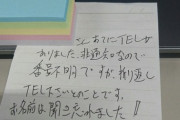 さん あてにTELが
ありました。非通知なので
番号不明ですが折り返し
TEL下さいとのことです。
お名前は聞き忘れました!